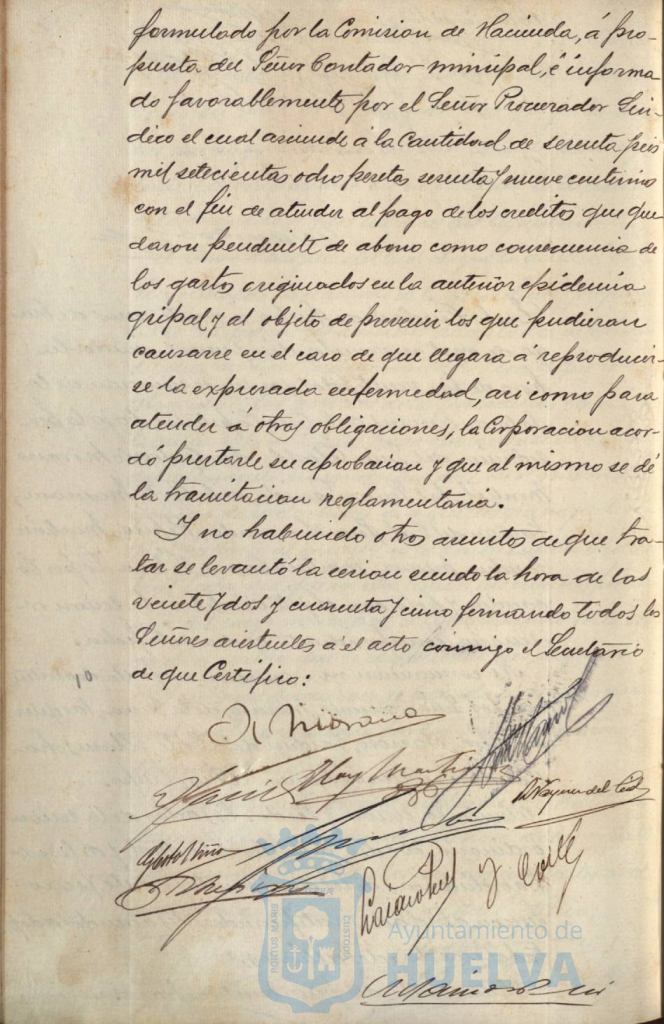 formulado por la Comision de Hacienda, á pro-
puesta del Señor Contador municipal, é informa
do favorablemente por el Señor Procurador Sín-
dico el cual asciende á la Cantidad de sesenta y seis
mil setecientas ocho pesetas sesenta y nueve centimos
con el fin de atender al pago de los creditos que que
daron pendiente de abono como consecuencia de
los gastos originados en la anterior epidemia
gripal y al objeto de prevenir los que pudieran
causarse en el caso de que llegara á reproducir-
se la expresada enfermedad, asi como para
atender á otras obligaciones, la Corporacion acor-
dó prestarle su aprobacion y que al mismo se dé
la tramitacion reglamentaria.
Y no habiendo otros asuntos de que tra-
tar se levantó la sesion siendo la hora de las
veinte y dos y cuarenta y cinco firmando todos los
Señores asistentes á el acto conmigo el Secretario
de que Certifico:
10
PORTUS MARIS
CUSTODIA
Ayuntamiento de
HUELVA